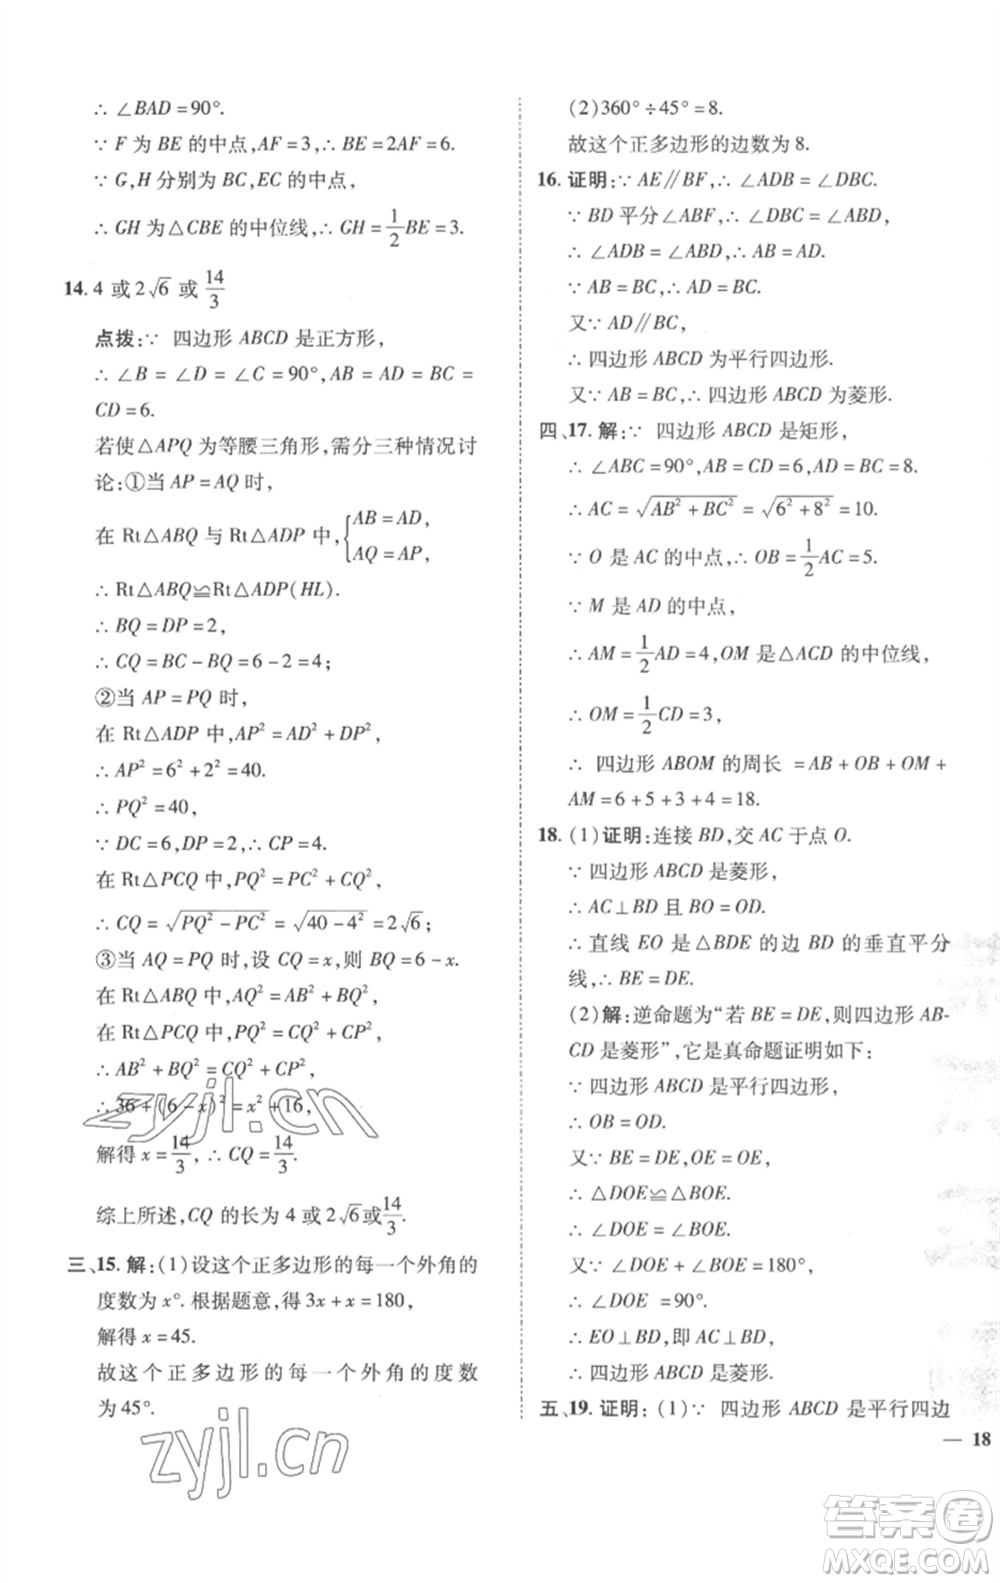 ∴ ∠BAD = 90°.
∵ F 为 BE 的中点, AF = 3, ∴ BE = 2AF = 6.
∵ G, H 分别为 BC, EC 的中点,
∴ GH 为△CBE 的中位线, ∴ GH = 1/2 BE = 3.
14. 4 或 2√6 或 14/3
点拨: ∵ 四边形 ABCD 是正方形,
∴ ∠B = ∠D = ∠C = 90°, AB = AD = BC =
CD = 6.
若使△APQ 为等腰三角形, 需分三种情况讨
论: ①当 AP = AQ 时,
在 Rt△ABQ 与 Rt△ADP 中, { AB = AD, AQ = AP,
∴ Rt△ABQ≌Rt△ADP(HL).
∴ BQ = DP = 2,
∴ CQ = BC − BQ = 6 − 2 = 4;
②当 AP = PQ 时,
在 Rt△ADP 中, AP² = AD² + DP²,
∴ AP² = 6² + 2² = 40.
∴ PQ² = 40,
∵ DC = 6, DP = 2, ∴ CP = 4.
在 Rt△PCQ 中, PQ² = PC² + CQ²,
∴ CQ = √(PQ² − PC²) = √(40 − 4²) = 2√6;
③当 AQ = PQ 时, 设 CQ = x, 则 BQ = 6 − x.
在 Rt△ABQ 中, AQ² = AB² + BQ²,
在 Rt△PCQ 中, PQ² = CQ² + CP²,
∴ AB² + BQ² = CQ² + CP²,
∴ 36 + (6 − x)² = x² + 16,
解得 x = 14/3, ∴ CQ = 14/3.
综上所述, CQ 的长为 4 或 2√6 或 14/3.
三、15. 解: (1)设这个正多边形的每一个外角的
度数为 x°. 根据题意, 得 3x + x = 180,
解得 x = 45.
故这个正多边形的每一个外角的度数
为 45°.
(2)360° ÷ 45° = 8.
故这个正多边形的边数为 8.
16. 证明: ∵ AE∥BF, ∴ ∠ADB = ∠DBC.
∵ BD 平分∠ABF, ∴ ∠DBC = ∠ABD,
∴ ∠ADB = ∠ABD, ∴ AB = AD.
∵ AB = BC, ∴ AD = BC.
又∵ AD∥BC,
∴ 四边形 ABCD 为平行四边形.
又∵ AB = BC, ∴ 四边形 ABCD 为菱形.
四、17. 解: ∵ 四边形 ABCD 是矩形,
∴ ∠ABC = 90°, AB = CD = 6, AD = BC = 8.
∴ AC = √(AB² + BC²) = √(6² + 8²) = 10.
∵ O 是 AC 的中点, ∴ OB = 1/2 AC = 5.
∵ M 是 AD 的中点,
∴ AM = 1/2 AD = 4, OM 是△ACD 的中位线,
∴ OM = 1/2 CD = 3,
∴ 四边形 ABOM 的周长 = AB + OB + OM +
AM = 6 + 5 + 3 + 4 = 18.
18. (1)证明: 连接 BD, 交 AC 于点 O.
∵ 四边形 ABCD 是菱形,
∴ AC⊥BD 且 BO = OD.
∴ 直线 EO 是△BDE 的边 BD 的垂直平分
线, ∴ BE = DE.
(2)解: 逆命题为“若 BE = DE, 则四边形 AB-
CD 是菱形”, 它是真命题证明如下:
∵ 四边形 ABCD 是平行四边形,
∴ OB = OD.
又∵ BE = DE, OE = OE,
∴ △DOE≌△BOE.
∴ ∠DOE = ∠BOE.
又∵ ∠DOE + ∠BOE = 180°,
∴ ∠DOE = 90°.
∴ EO⊥BD, 即 AC⊥BD,
∴ 四边形 ABCD 是菱形.
五、19. 证明: (1)∵ 四边形 ABCD 是平行四边
— 18
zyjl.cn
zyjl.cn
答案卷
MXQE.COM